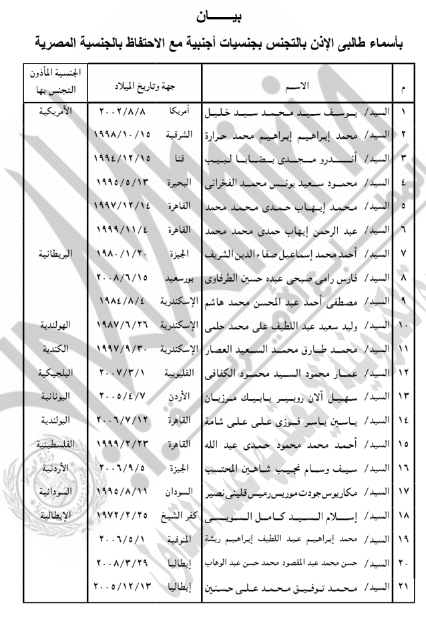 بيـــــان
بأسماء طالبى الإذن بالتجنس بجنسيات أجنبية مع الاحتفاظ بالجنسية المصرية
م الاســـم جهة وتاريخ الميلاد الجنسية المأذون التجنس بها
١ السيد/ يوسف سيد محمد سيد خليل أمريكا ٢٠٠٢/٨/٨ الأمريكية
٢ السيد/ محمد إبراهيم إبراهيم محمد حرارة الشرقية ١٩٩٨/١٠/١٥
٣ السيد/ أندرو مجدى بضابا لبيب قنا ١٩٩٤/١٢/١٥
٤ السيد/ محمود سعيد يونس محمد الفخرانى البحيرة ١٩٩٥/٥/١٣
٥ السيد/ محمد إيهاب حمدى محمد محمد القاهرة ١٩٩٧/١٢/١٤
٦ السيد/ عبد الرحمن إيهاب حمدى محمد محمد القاهرة ١٩٩٩/١١/٤
٧ السيد/ أحمد محمد إسماعيل صفاء الدين الشريف الجيزة ١٩٨٠/١/٢٠ البريطانية
٨ السيد/ فارس رامى صبحى عبده حسين الطرفاوى بورسعيد ٢٠٠٨/٦/١٥
٩ السيد/ مصطفى أحمد عبد المحسن محمد هاشم الإسكندرية ١٩٨٤/٨/٤
١٠ السيد/ وليد سعيد عبد اللطيف على محمد حلمى الإسكندرية ١٩٨٧/٦/٢٦ الهولندية
١١ السيد/ محمد طارق محمد السعيد العصار الإسكندرية ١٩٩٧/٩/٣٠ الكندية
١٢ السيد/ عمار محمود السيد محمود الكفافى القليوبية ٢٠٠٧/٣/١ البلجيكية
١٣ السيد/ سهيل آلان روبير بابيك مرزبان الأردن ٢٠٠٥/٤/٧ اليونانية
١٤ السيد/ ياسين ياسر فوزى على على شامة القاهرة ٢٠٠٦/٧/١٢ البولندية
١٥ السيد/ أحمد محمد محمود حمدى عبد الله القاهرة ١٩٩٩/٢/٢٣ الفلسطينية
١٦ السيد/ سيف وسام نجيب شاهين المحتسب الجيزة ٢٠٠٦/٩/٥ الأردنية
١٧ السيد/ مكاريوس جودت موريس رميس قلينى نصير السودان ١٩٩٥/٨/١١ السودانية
١٨ السيد/ إسلام السيد كامل السويسى كفر الشيخ ١٩٧٢/٢/٢٥ الإيطالية
١٩ السيد/ محمد إبراهيم عبد اللطيف إبراهيم ريشة المنوفية ٢٠٠٦/٥/١
٢٠ السيد/ حسن محمد عبد المقصود محمد حسن عبد الوهاب إيطاليا ٢٠٠٨/٣/٢٩
٢١ السيد/ محمد توفيق محمد على حسنين إيطاليا ٢٠٠٥/١٢/١٣